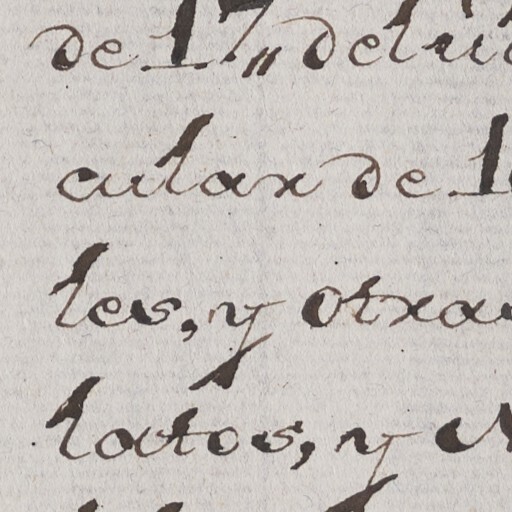 de 17„ del
cular de 1
les, y otra
latos, y